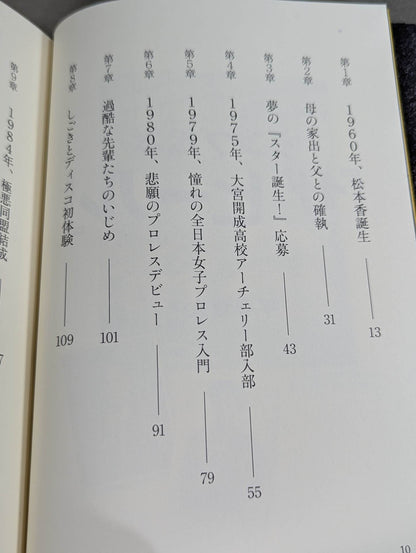 第1章　1960年、松本香誕生　13
第2章　母の家出と父との確執　31
第3章　夢の『スター誕生！』応募　43
第4章　1975年、大宮開成高校アーチェリー部入部　55
第5章　1979年、憧れの全日本女子プロレス入門　79
第6章　1980年、悲願のプロレスデビュー　91
第7章　過酷な先輩たちのいじめ　101
第8章　しごきとディスコ初体験　109
第9章　1984年、極悪同盟結成
7
10